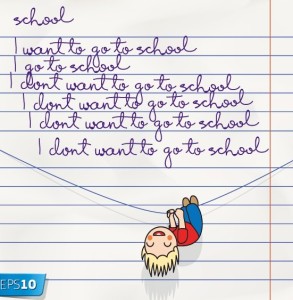 school
I want to go to school
I go to school
I dont want to go to school
I dont want to go to school
I dont want to go to school
I dont want to go to school
EPS10